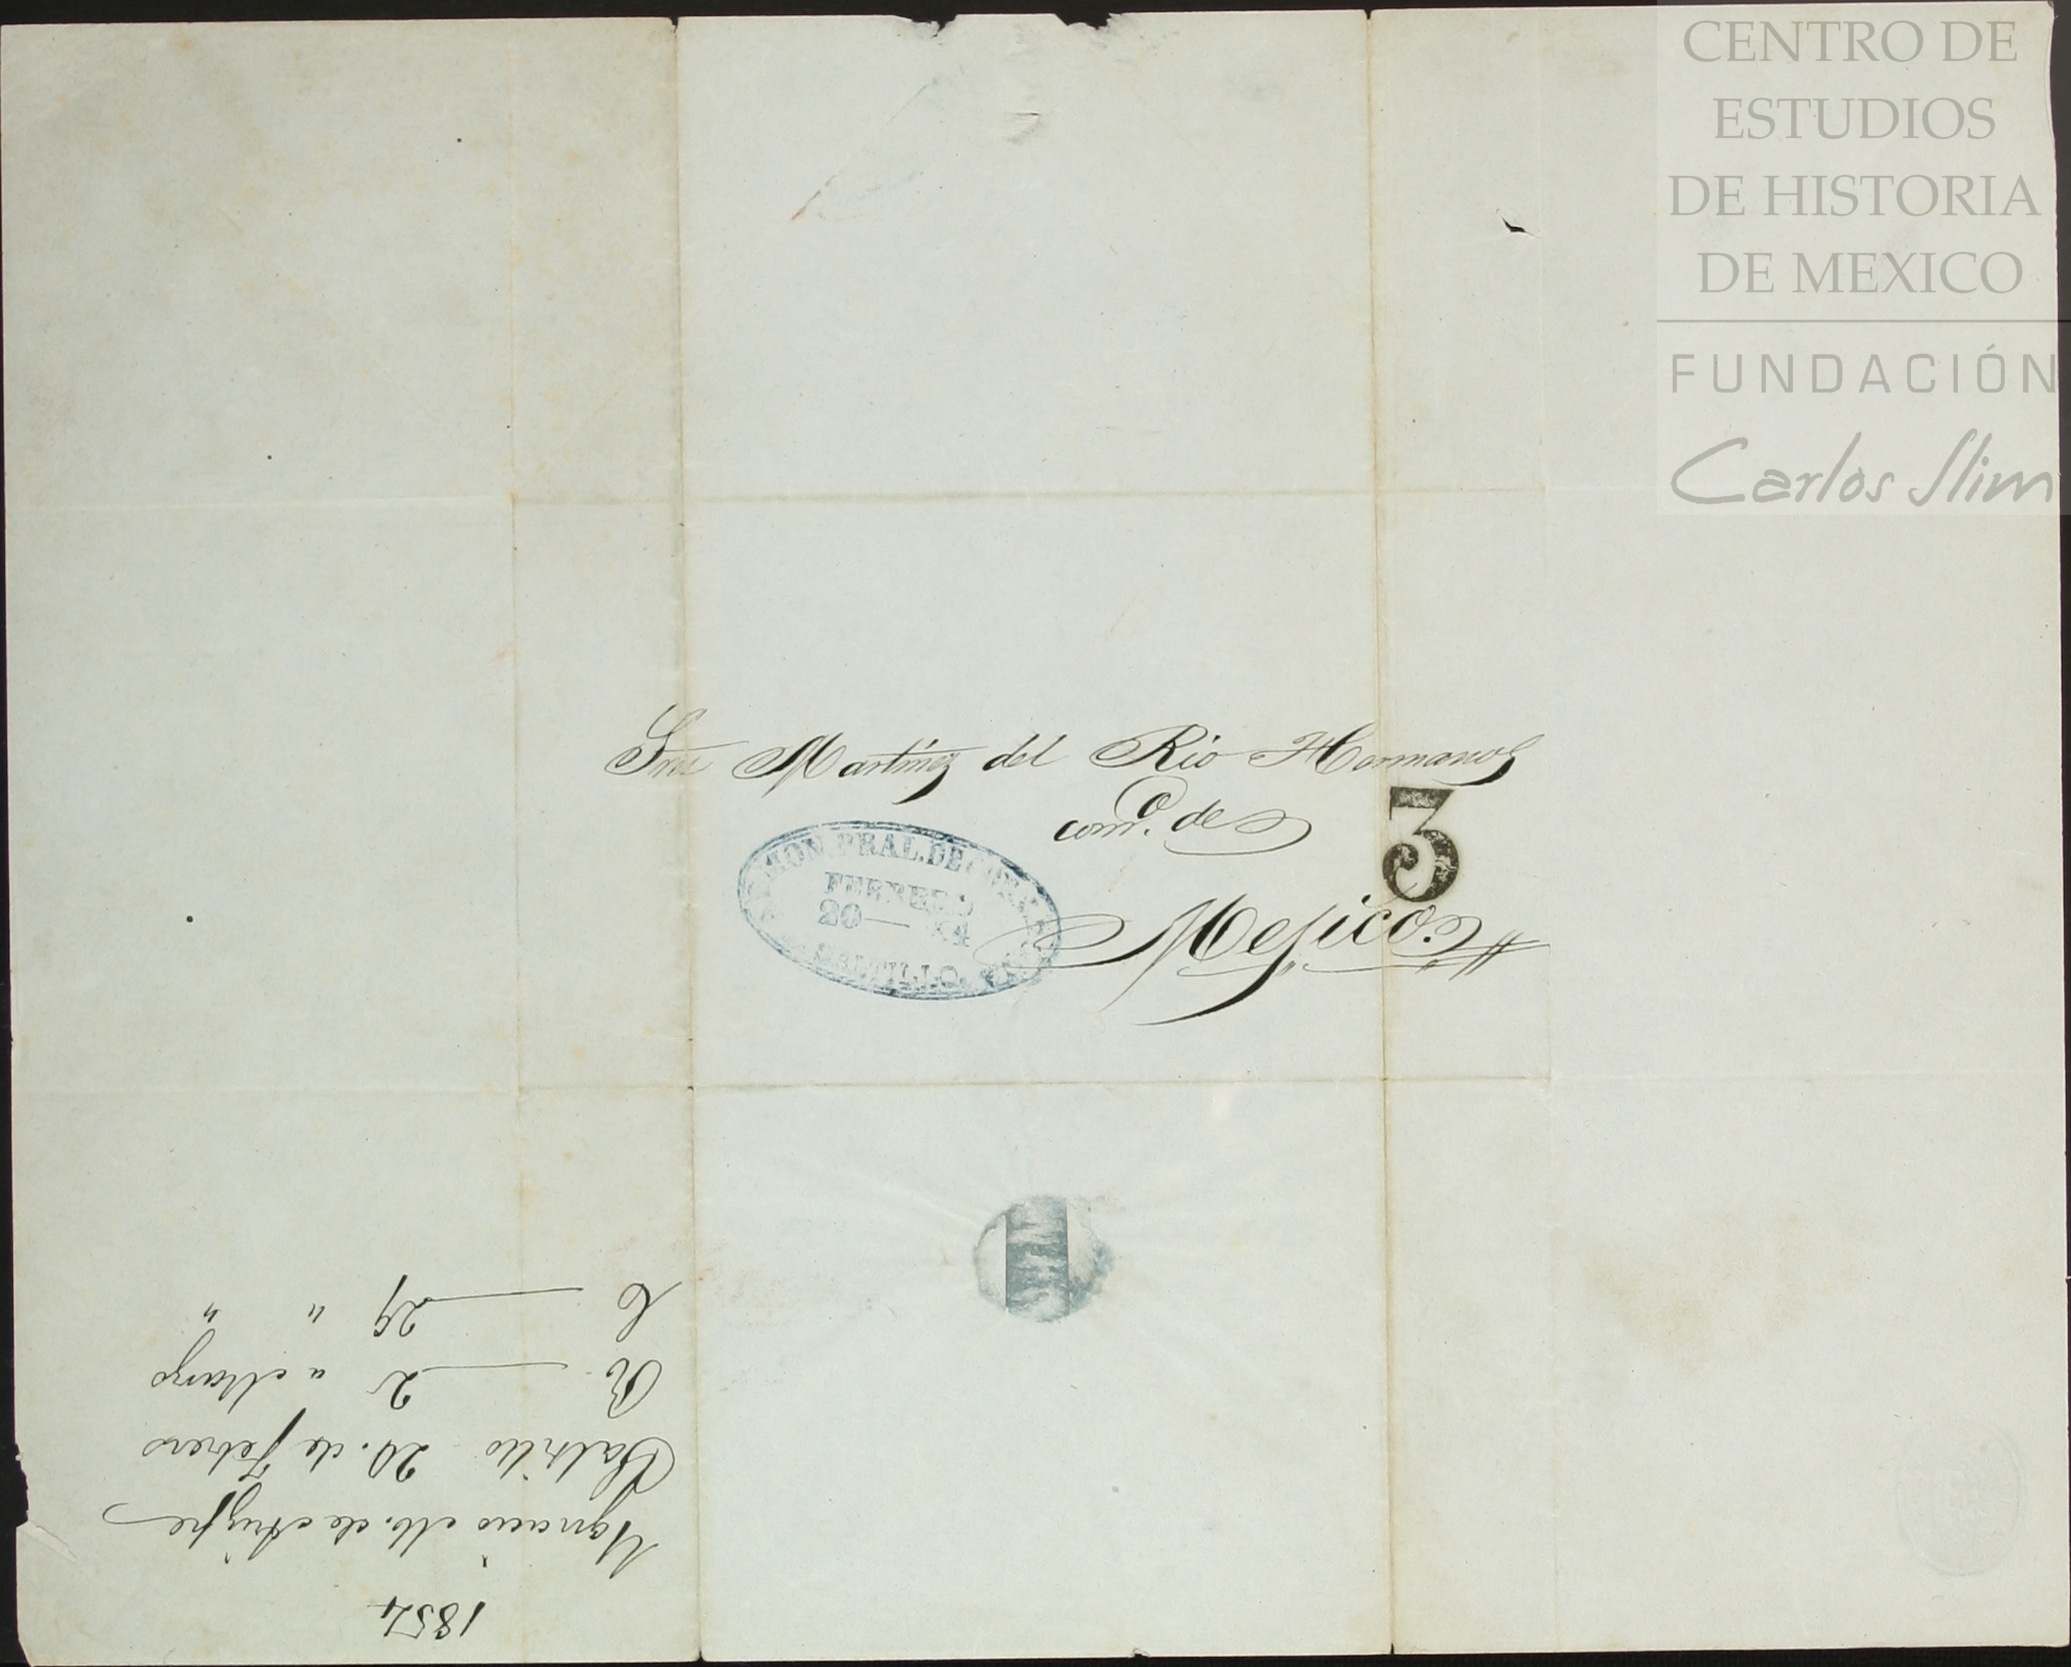 CENTRO DE
ESTUDIOS
DE HISTORIA
DE MEXICO
FUNDACIÓN
Carlos Slim
Sres Martínez del Rio Hermanos
como. de
3
Mejico.
MON. PRAL. DE
FEBRERO
20 — 54
SALTILLO.
1854
Ygnacio M. de Arizpe
Saltillo 20. de Febrero
R. — 2 " Marzo
C — 29 " "